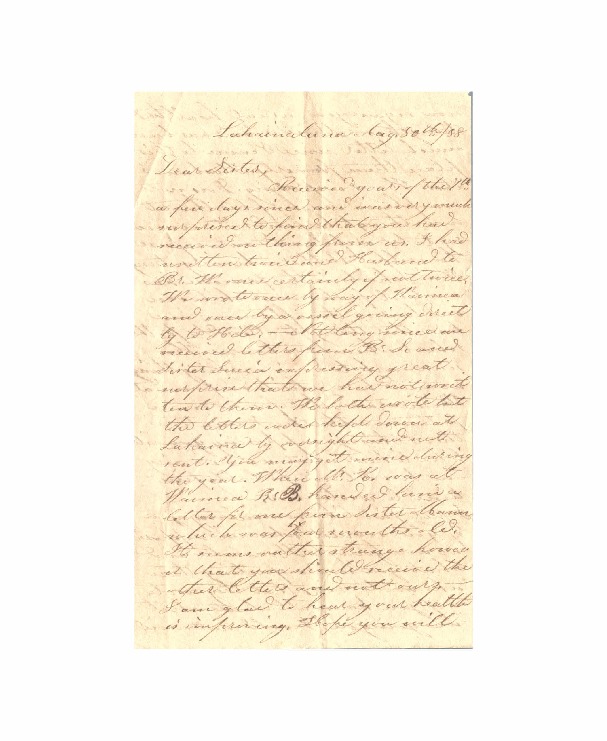 Lahainaluna Aug. 30th /38
Dear Sister,
Received yours of the 7th
a few days since and was very much
surprised to find that you had
received nothing from us. I had
written twice and Husband to
Br. W. once certainly if not twice.
We wrote once by way of Waimea
and once by a vessel going direct
ly to Hilo. — Not long since we
received letters from Br. L. and
Sister Lucia expressing great
surprise that we had not writ
ten to them. We both wrote but
the letters were kept down at
Lahaina by oversight and not
sent. You may get mine during
the year. When Mr. H. was at
Waimea Br. B. handed him a
letter for me from Sister
which was four months old.
It seems rather strange howev
er that you should receive the
other letters and not ours. —
I am glad to hear your health
is improving. Hope you will